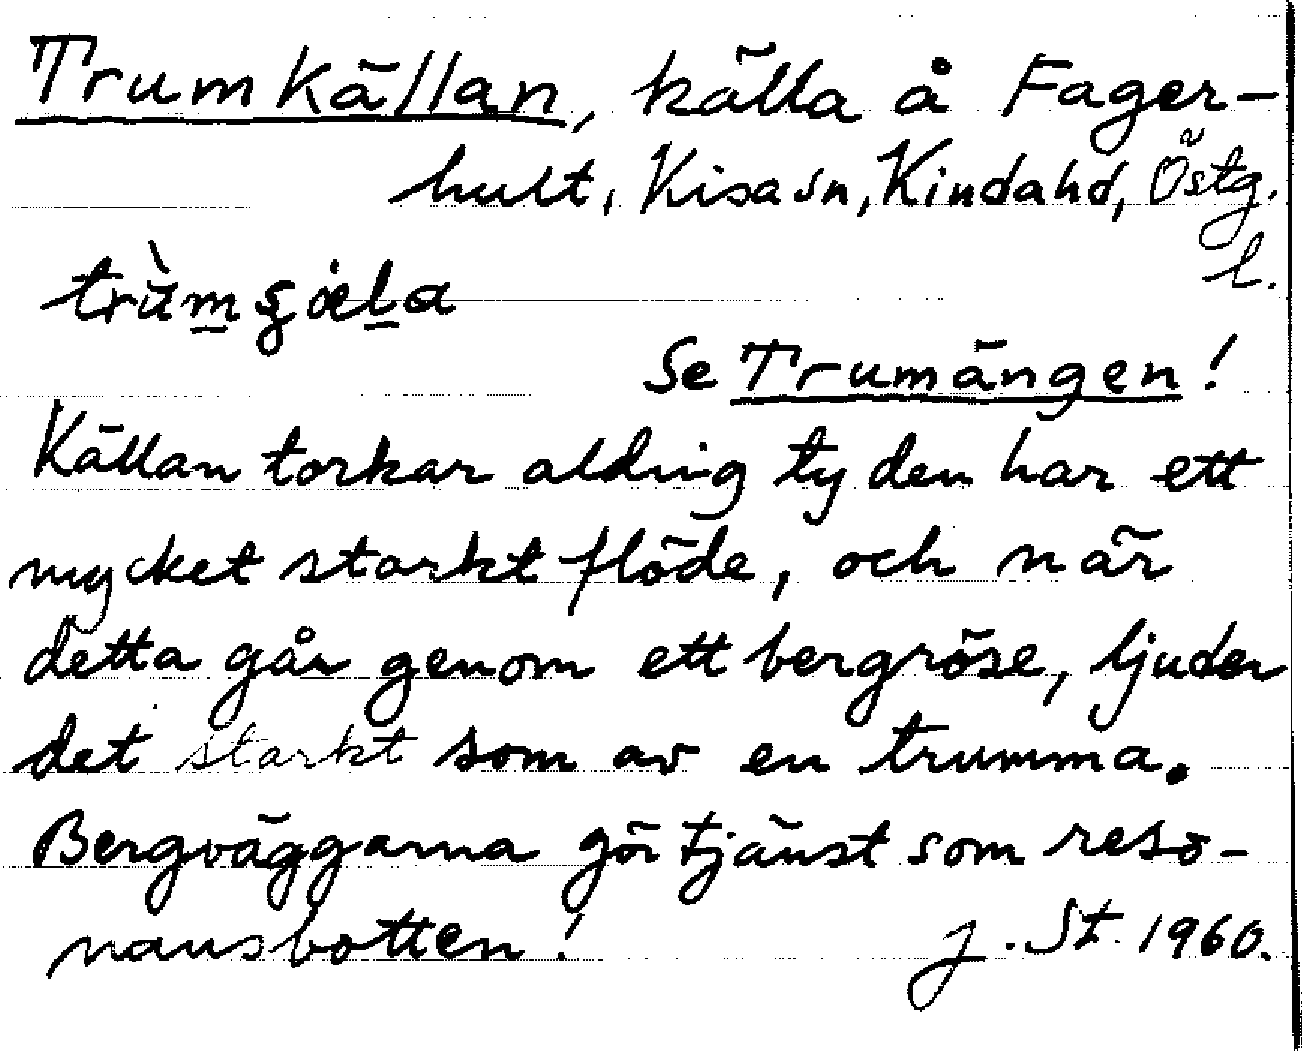 Trumkällan, källa å Fager-
hult, Kisa sn, Kinda hd, Östg.
l.
Se Trumängen!
Källan torkar aldrig ty den har ett
mycket starkt flöde, och när
detta går genom ett bergröse, ljuder
det starkt som av en trumma.
Bergväggarna gör tjänst som reso-
nansbotten! J. St. 1960.